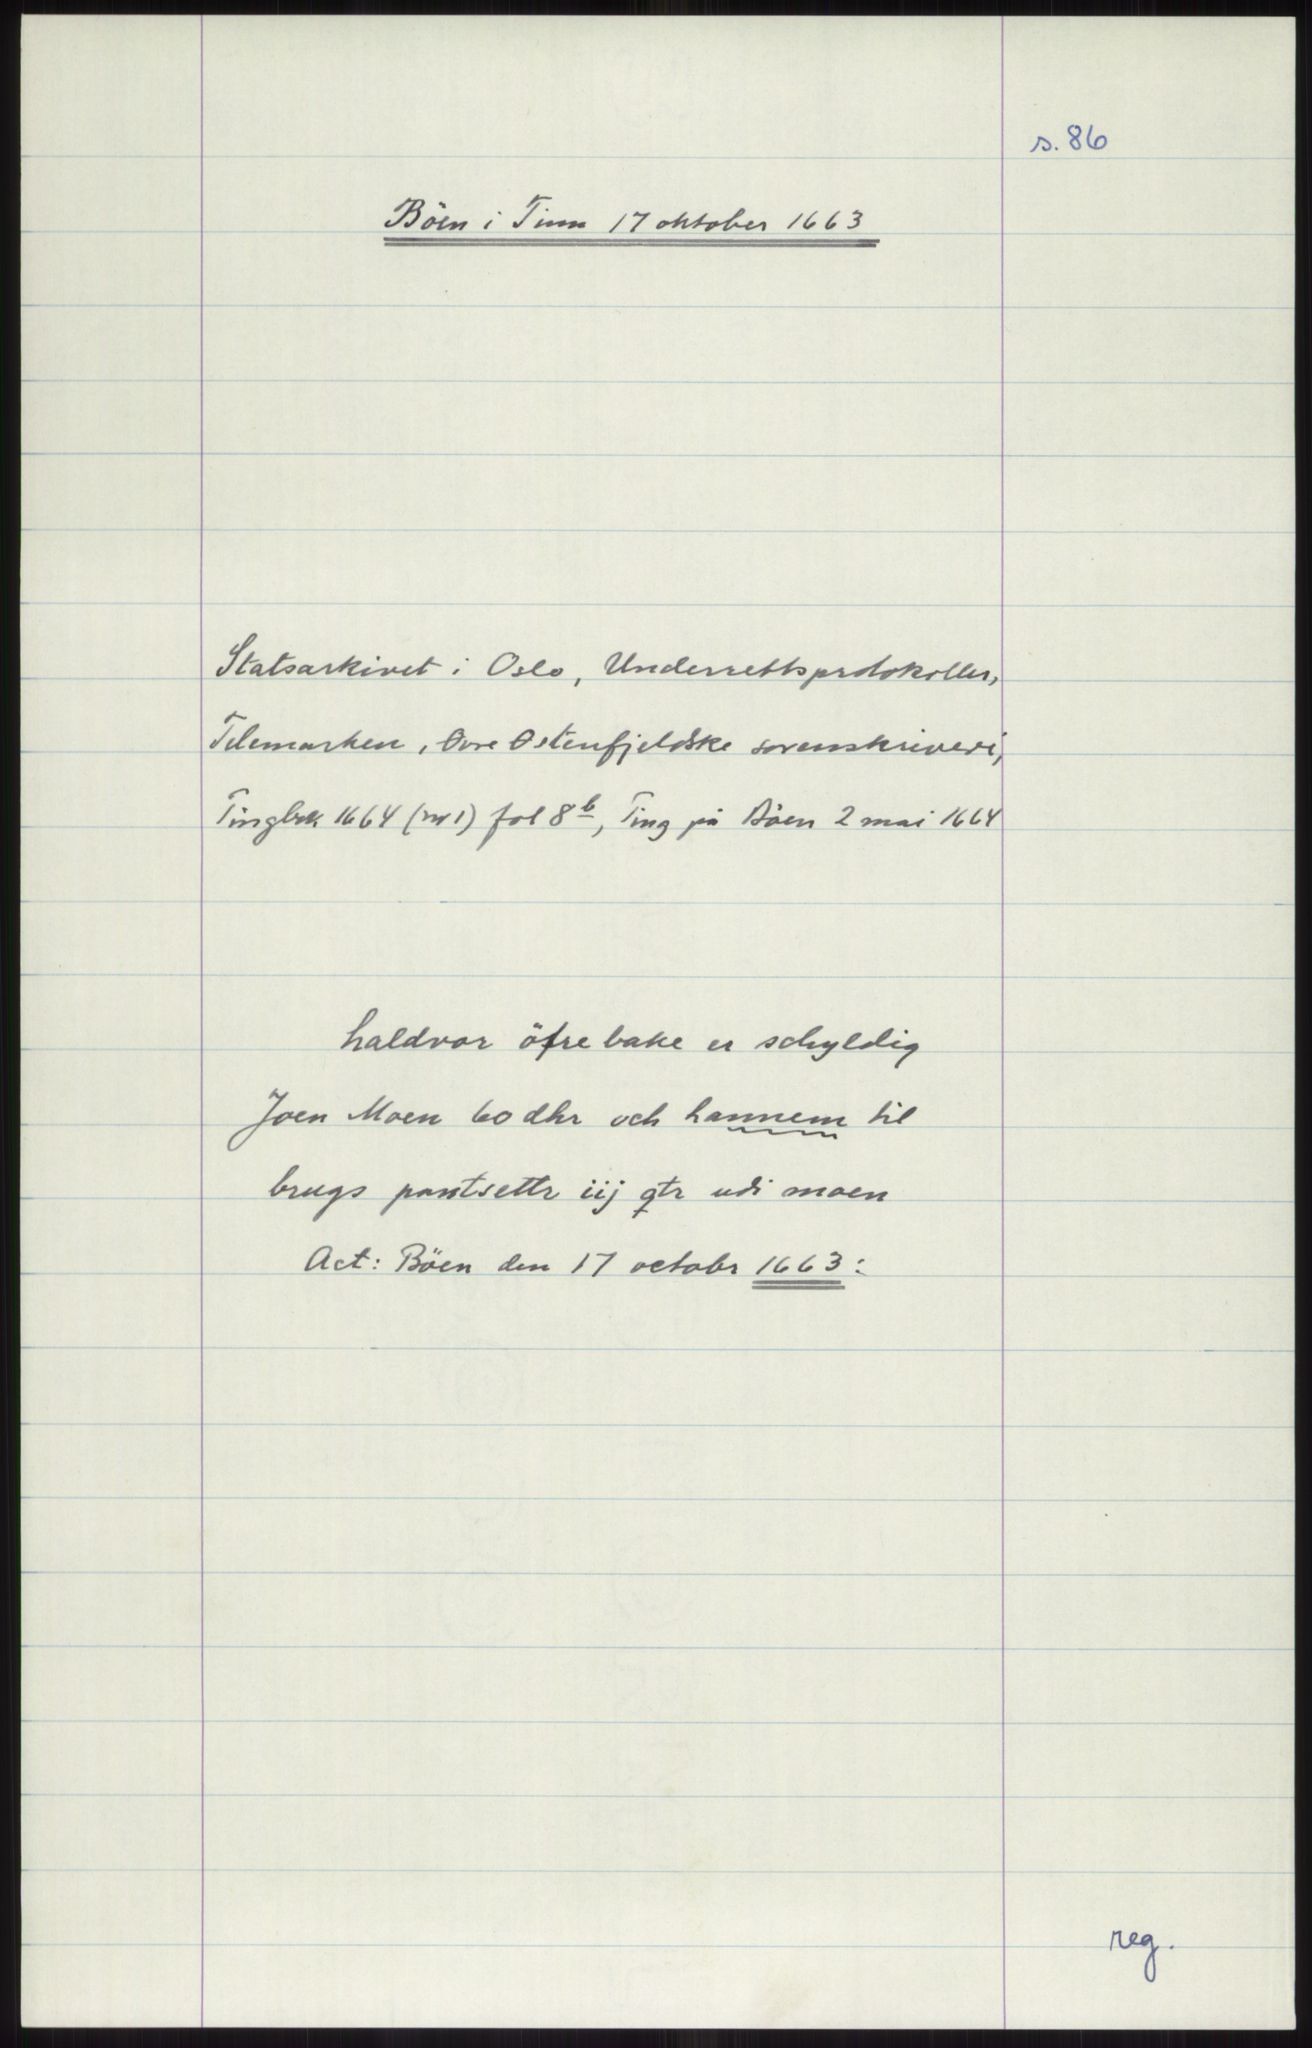 s. 86
Böen i Tinn 17 oktober 1663
Statsarkivet i Oslo, Underrettsprotokoller,
Telemarken, Øvre Østenfjeldske sorenskriveri,
Tingbok 1664 (nr 1) fol 8b, Ting på Böen 2 mai 1664
haldvor öfre bake er schyldig
Joen Moen 60 dlr och hannem til
brugs pantsettr iij qtr udi moen
Act: Böen den 17 octobr 1663:
reg.